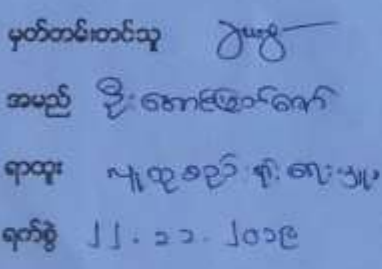 မှတ်တမ်းတင်သူ
အမည် ဦးအောင်ကြော်ဇော်
ရာထူး လူထုစည်းရုံးရေးမှူး
ရက်စွဲ ၂၂.၁၁.၂၀၁၉